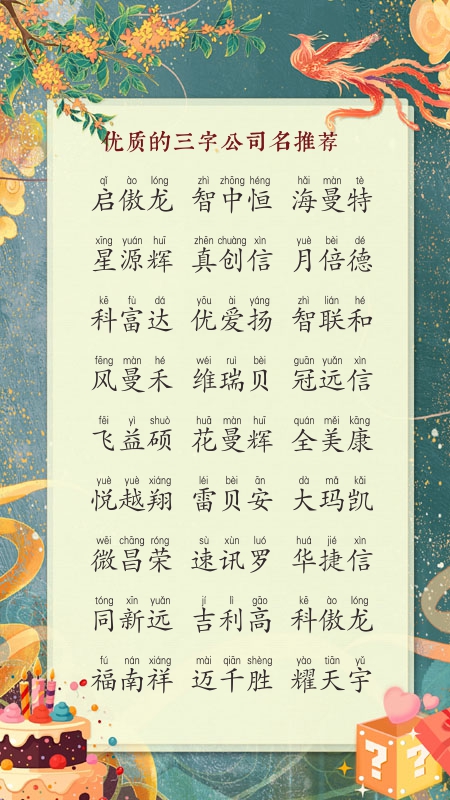 优质的三字公司名推荐
qǐ ào lóng zhì zhōng héng hǎi màn tè
启傲龙 智中恒 海曼特
xīng yuán huī zhēn chuàng xìn yuè bèi dé
星源辉 真创信 月倍德
kē fù dá yōu ài yáng zhì lián hé
科富达 优爱扬 智联和
fēng màn hé wéi ruì bèi guān yuǎn xìn
风曼禾 维瑞贝 冠远信
fēi yì shuò huā màn huī quán měi kāng
飞益硕 花曼辉 全美康
yuè yuè xiáng léi bèi ān dà mǎ kǎi
悦越翔 雷贝安 大玛凯
wēi chāng róng sù xùn luó huá jié xìn
微昌荣 速讯罗 华捷信
tóng xīn yuǎn jí lì gāo kē ào lóng
同新远 吉利高 科傲龙
fú nán xiáng mài qiān shèng yào tiān yǔ
福南祥 迈千胜 耀天宇
? ?